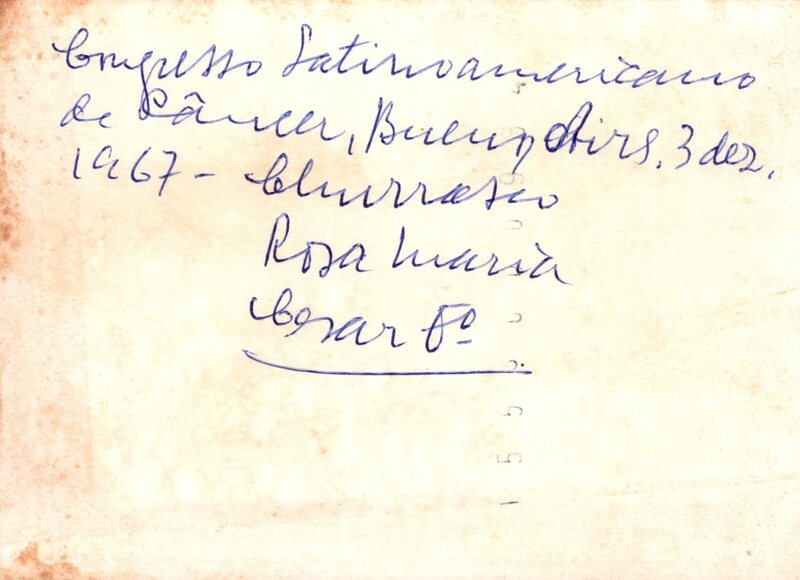 Congresso Latinoamericano
de Câncer, Buenos Aires. 3 dez.
1967 - Churrasco
Rosa Maria
Cesar Fº